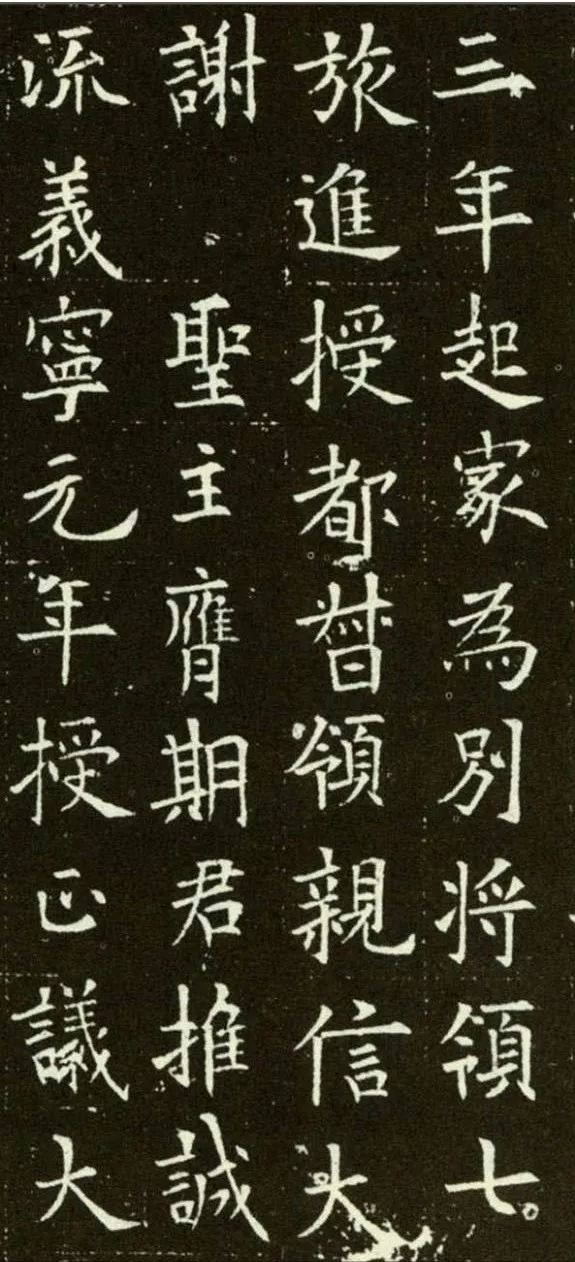 三年起家為別将領七
旅進授都督領親信大
謝　聖主膺期君推誠
流義寧元年授正議大